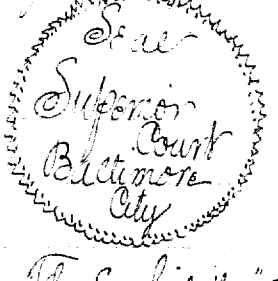 Seal
Superior
Court
Baltimore
City